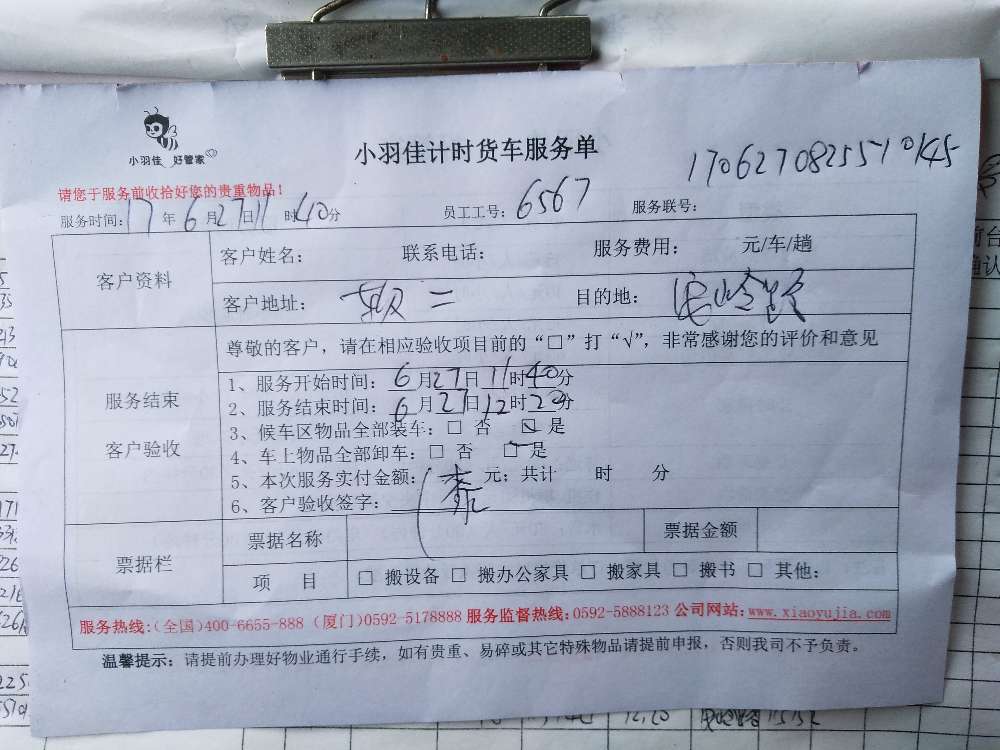 小羽佳 好管家
小羽佳计时货车服务单
170627082551 0145
请您于服务前收拾好您的贵重物品！
服务时间：17 年 6 月 27 日 11 时 40 分 员工工号：6567 服务联号：
客户资料
客户姓名： 联系电话： 服务费用： 元/车/趟
客户地址： 二 目的地：
尊敬的客户，请在相应验收项目前的“□”打“√”，非常感谢您的评价和意见
服务结束
客户验收
1、服务开始时间：6月27日11时40分
2、服务结束时间：6月27日12时20分
3、候车区物品全部装车：□ 否 □ 是
4、车上物品全部卸车：□ 否 □ 是
5、本次服务实付金额： 元；共计 时 分
6、客户验收签字：
票据栏
票据名称 票据金额
项 目 □ 搬设备 □ 搬办公家具 □ 搬家具 □ 搬书 □ 其他：
服务热线:(全国)400-6655-888 (厦门)0592-5178888 服务监督热线:0592-5888123 公司网站:www.xiaoyujia.com
温馨提示：请提前办理好物业通行手续，如有贵重、易碎或其它特殊物品请提前申报，否则我司不予负责。